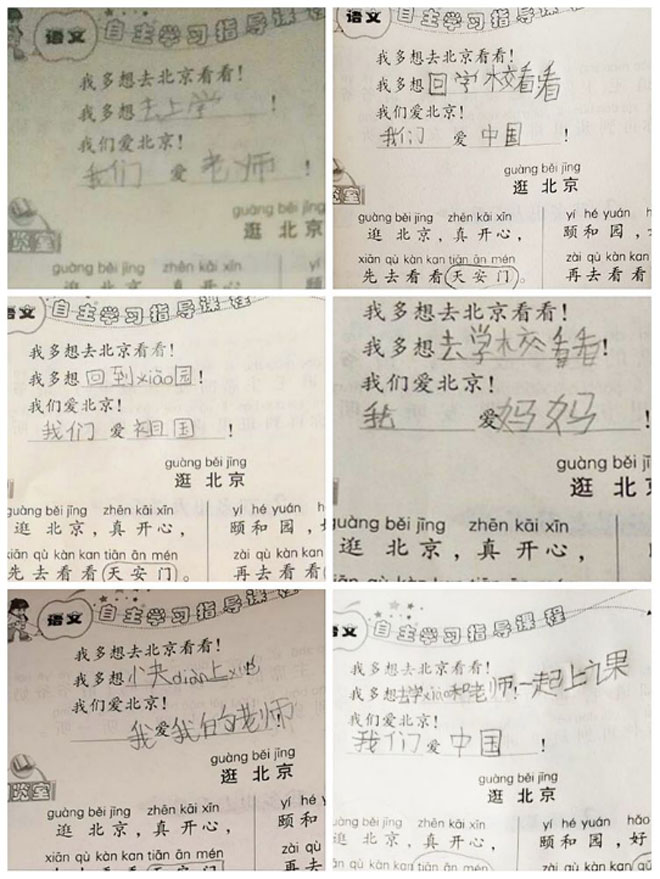 语文 自主学习指导课程
我多想去北京看看！
我多想去上学！
我们爱北京！
我们 爱 老师 ！
guàng běi jīng
逛 北京
guàng běi jīng zhēn kāi xīn yí h
逛 北京，真开心， 颐
语文 自主学习指导课程
我多想去北京看看！
我多想回学校看看
我们爱北京！
我们 爱 中国 ！
guàng běi jīng
逛 北京
guàng běi jīng zhēn kāi xīn yí hé yuán h
逛 北京，真开心， 颐和园，
xiān qù kàn kan tiān ān mén zài qù kàn kan
先去看看天安门。 再去看看
语文 自主学习指导课程
我多想去北京看看！
我多想回到xiào园！
我们爱北京！
我们 爱 祖国 ！
guàng běi jīng
逛 北京
guàng běi jīng zhēn kāi xīn yí hé yuán
逛 北京，真开心， 颐和园，
xiān qù kàn kan tiān ān mén zài qù kàn kan
先去看看天安门。 再去看看
我多想去北京看看！
我多想去学校看看！
我们爱北京！
我 爱妈妈 ！
guàng běi jī
逛 北京
guàng běi jīng zhēn kāi xīn yí hé
逛 北京，真开心， 颐和
xiān qù kàn kan tiān ān mén zài qù
语文 自主学习指导课程
我多想去北京看看！
我多想小夫diǎn上
我们爱北京！
我爱我的老师
guàng běi jīng
逛 北京
guàng běi jīng zhēn kāi xīn yí hé
逛 北京，真开心， 颐和
xiān qù kàn kan tiān ān mén zài qù k
先去看看天安门。 再去看
语文 自主学习指导课程
我多想去北京看看！
我多想去学xiào和老师一起上课
我们爱北京！
我们 爱 中国 ！
guàng běi jīng
逛 北京
guàng běi jīng zhēn kāi xīn yí hé yuán hǎo
逛 北京，真开心， 颐和园，好
xiān qù kàn kan tiān ān mén zài qù kàn kan gù